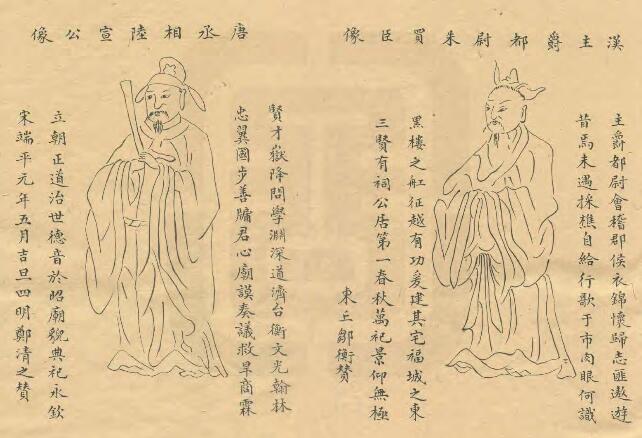 漢主爵都尉朱買臣像
主爵都尉會稽郡侯衣錦懷歸志匪遨遊
昔焉未遇採樵自給行歌于市肉眼何識
黑樓之舡征越有功爰建其宅福城之東
三賢有祠公居第一春秋萬祀景仰無極
東丘鄒衡賛
唐丞相陸宣公像
賢才嶽降問學淵深道濟台衡文光翰林
忠翼國步善牖君心廟謨奏議救旱商霖
立朝正道治世德音於昭廟貌典祀永欽
宋端平元年五月吉旦四明鄭清之賛